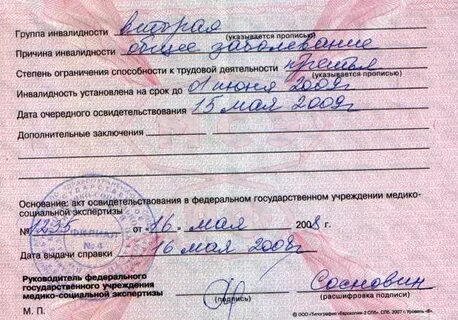 Группа инвалидности вторая
(указывается прописью)
Причина инвалидности общее заболевание
Степень ограничения способности к трудовой деятельности третья
(указывается прописью)
Инвалидность установлена на срок до 01 июня 2009г
Дата очередного освидетельствования 15 мая 2009г
Дополнительные заключения
Основание: акт освидетельствования в федеральном государственном учреждении медико-
социальной экспертизы
№ 1235 от 16. мая 2008 г.
ФИЛИАЛ
№ 4
Дата выдачи справки 16 мая 2008г
Руководитель федерального
государственного учреждения
медико-социальной экспертизы
Сосновин
(подпись) (расшифровка подписи)
М. П.
© ООО «Типография «Евросклон-2 СПб», СПб. 2007 г. Уровень «В».